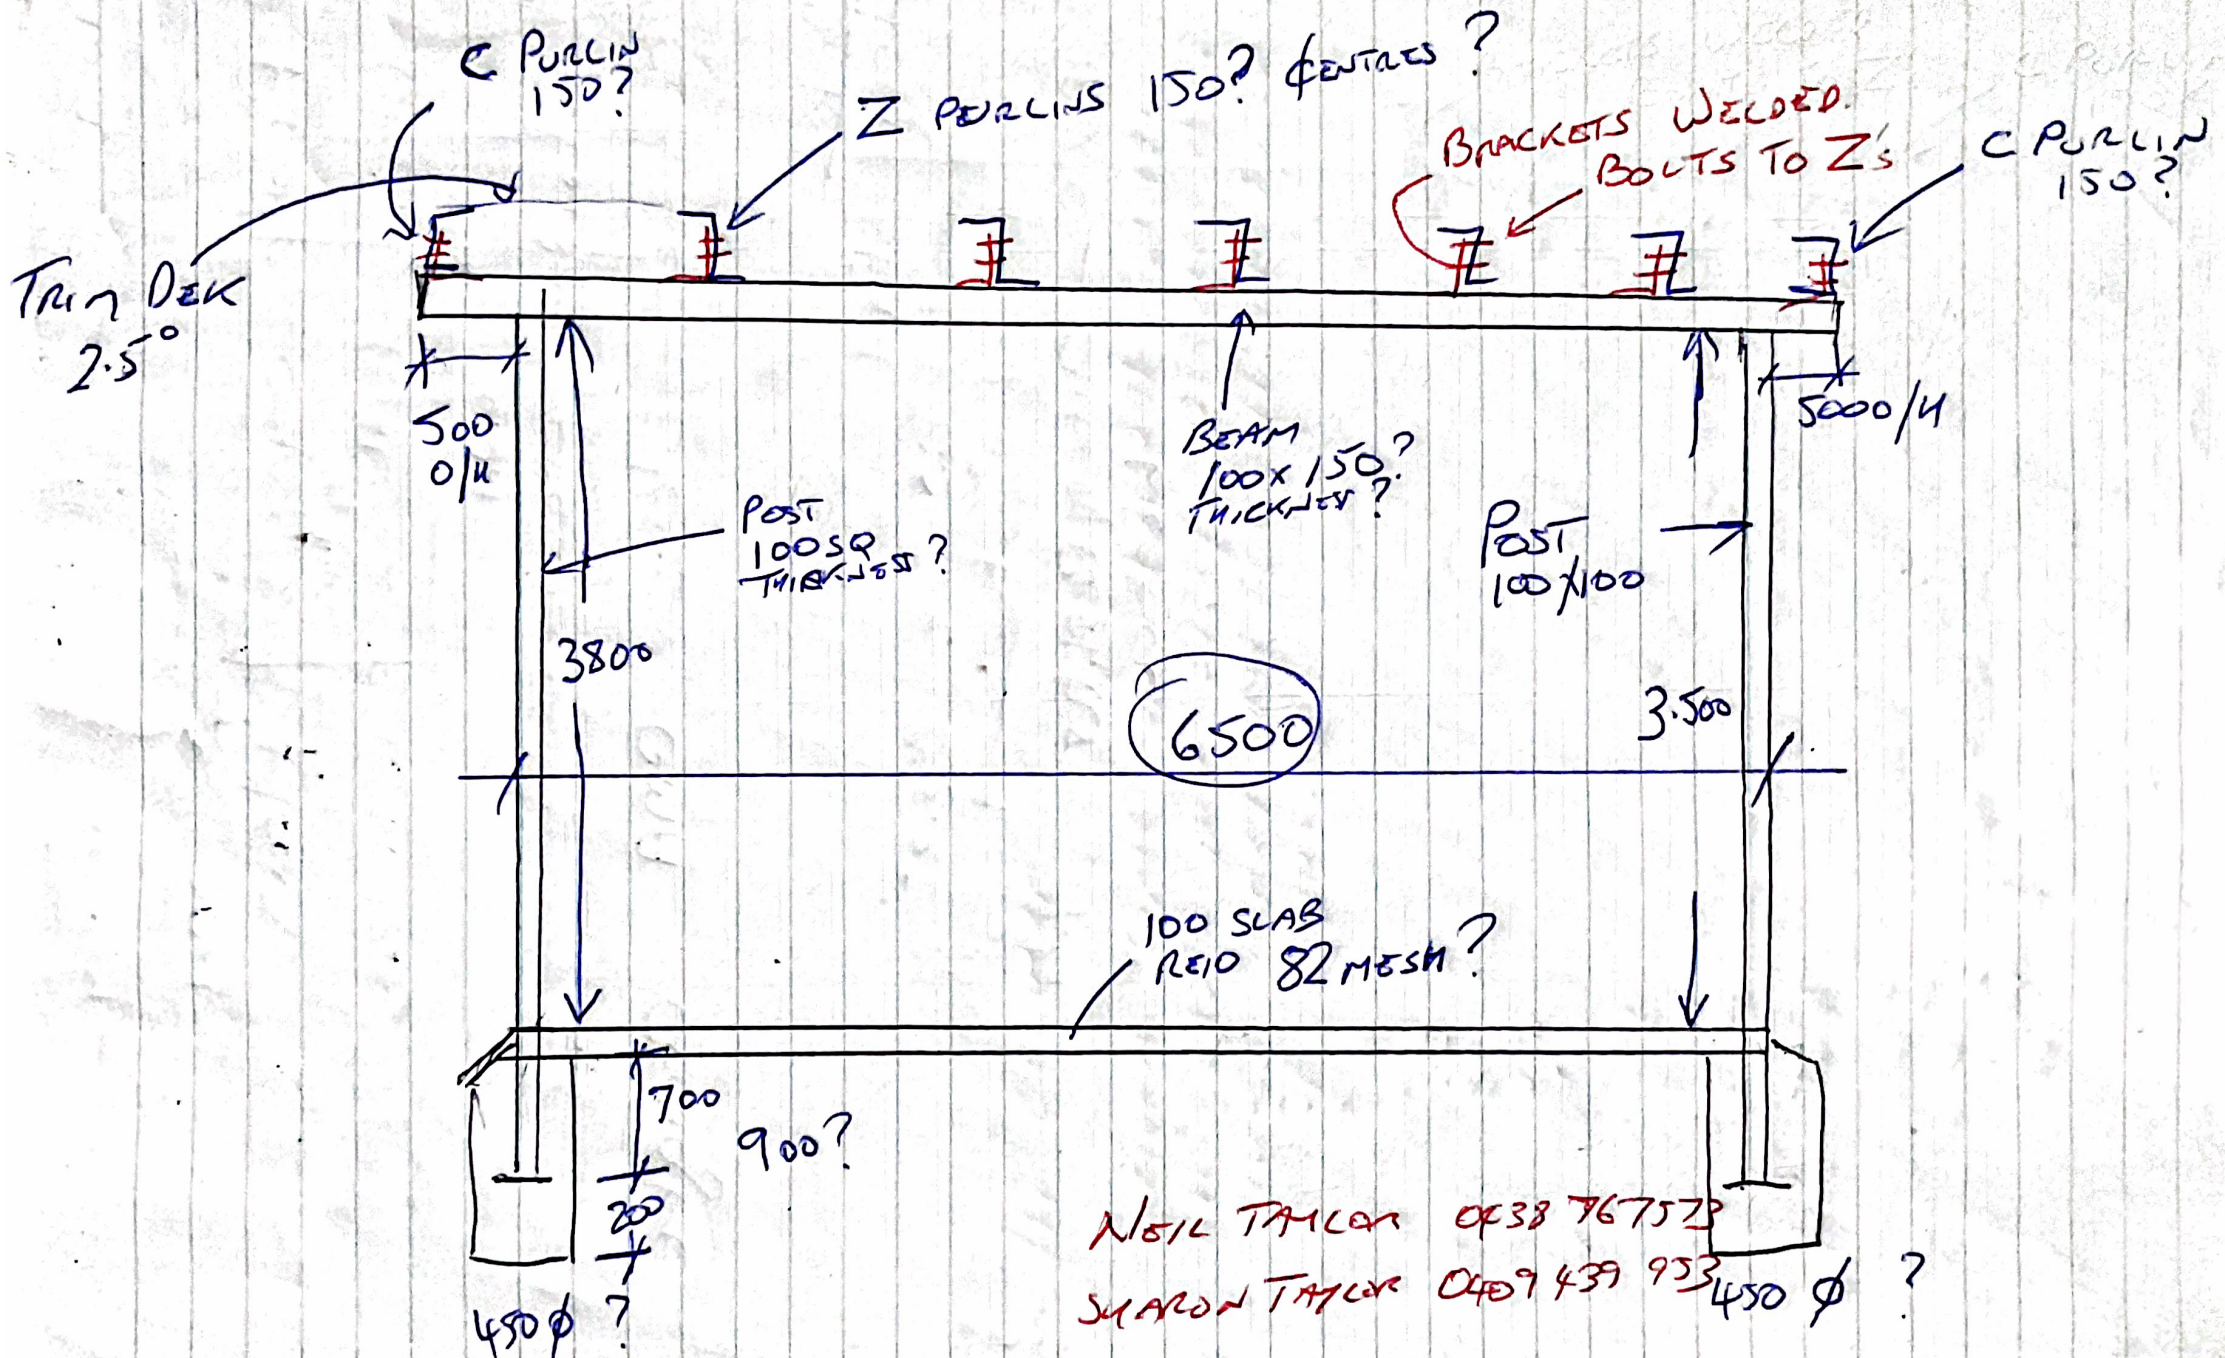 C PURLIN
150?
Z PURLINS 150? CENTRES ?
BRACKETS WELDED.
BOLTS TO Z's
C PURLIN
150?
TRIM DEK
2.5°
500
O/H
POST
100 SQ
THICKNESS ?
3800
BEAM
100 x 150?
THICKNESS ?
POST
100 x 100
500 O/H
6500
3.500
100 SLAB
REIO 82 MESH ?
700
900?
200
450 ϕ ?
NEIL TAYLOR 0438 767573
SHARON TAYLOR 0409 439 953
450 ϕ ?